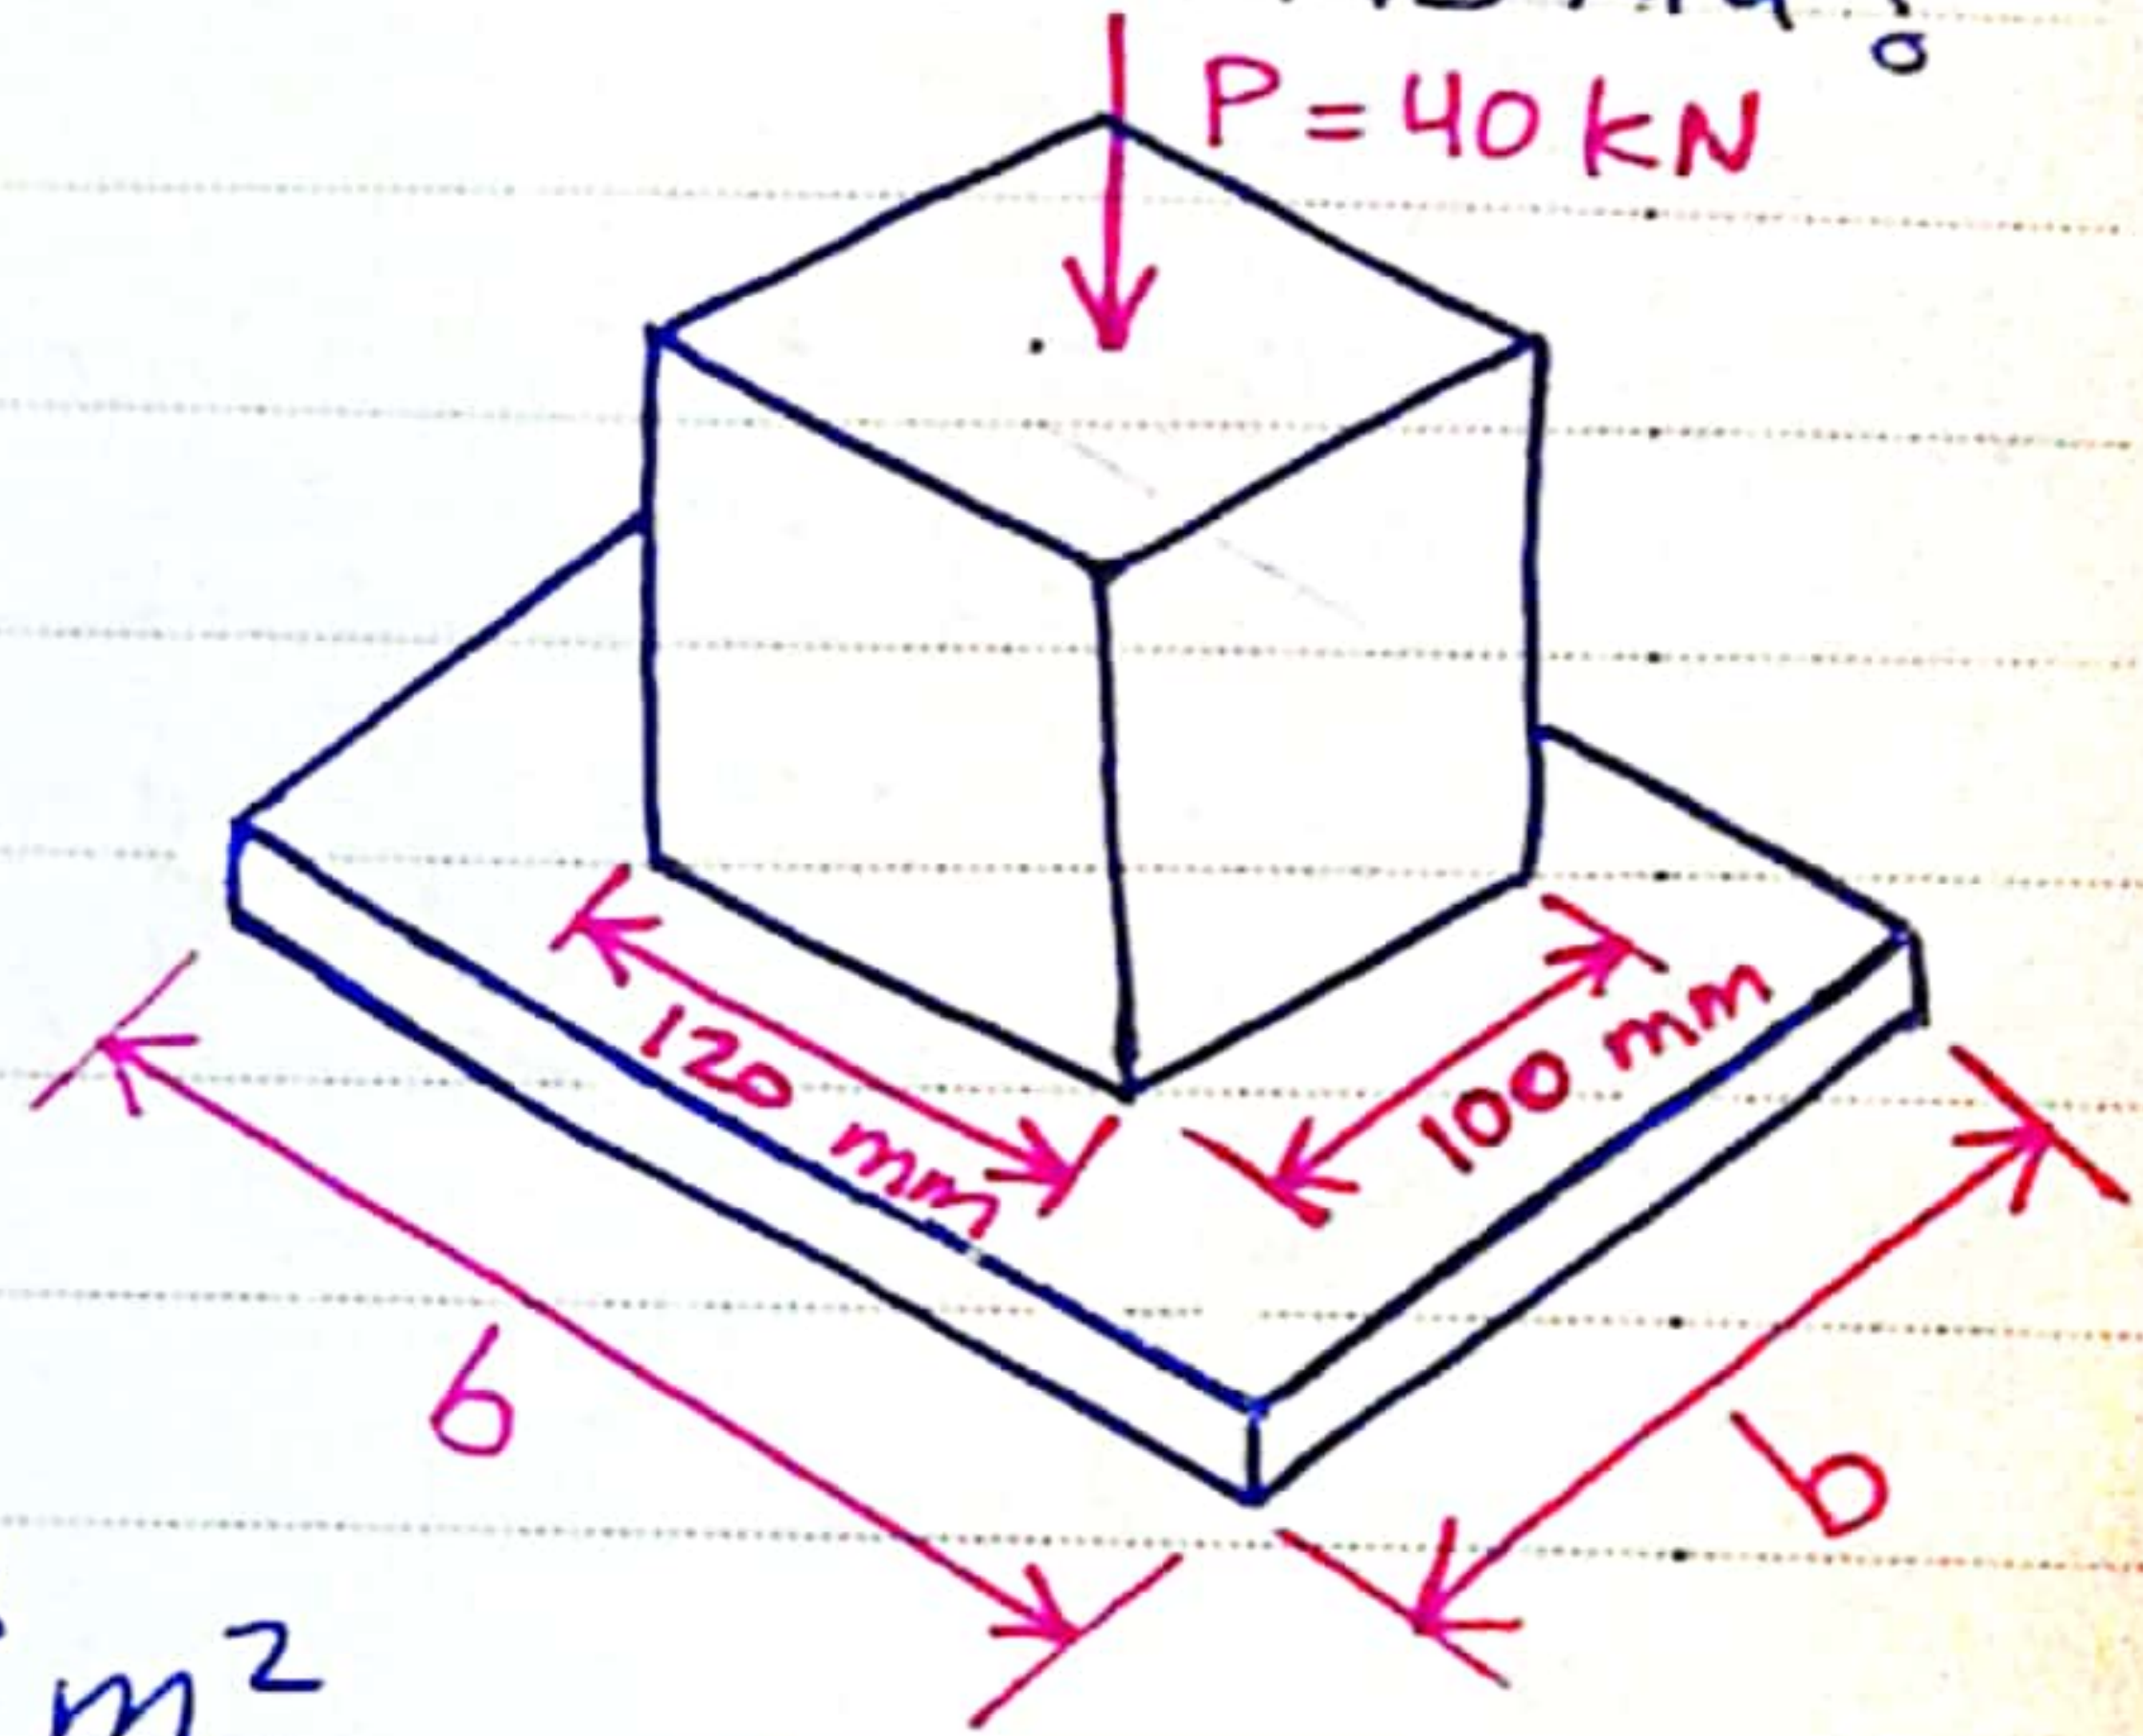 P = 40 kN
120 mm
100 mm
b
b
m²